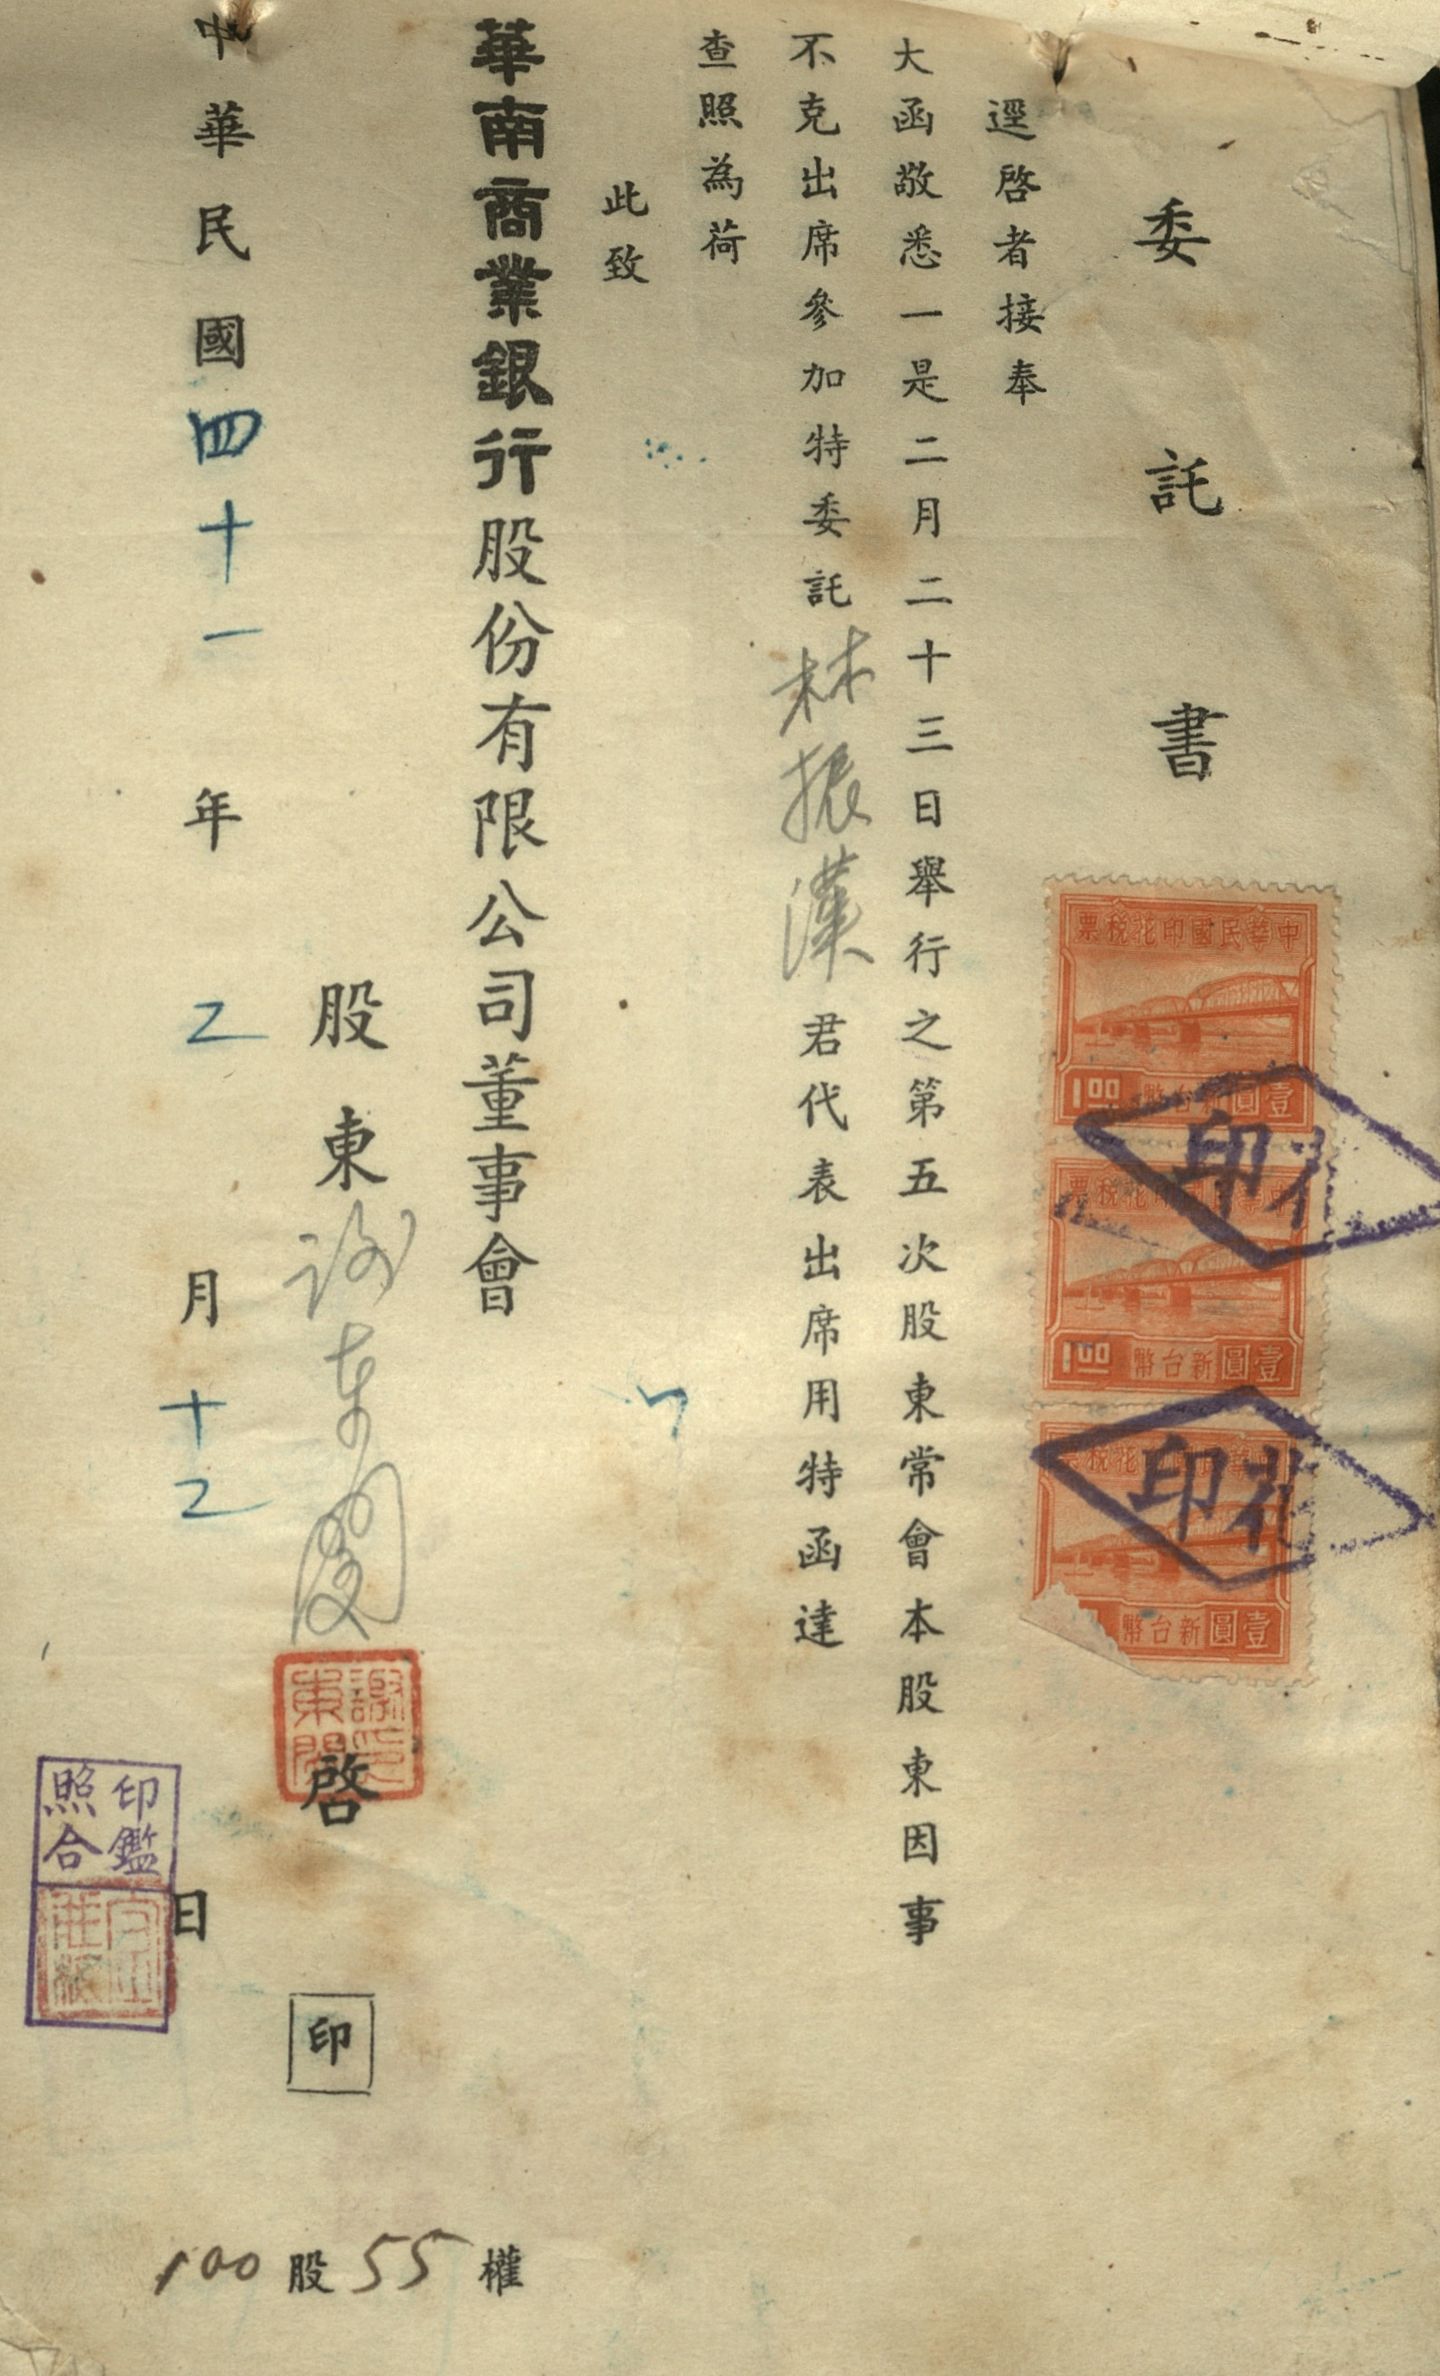 委託書
逕啓者接奉
大函敬悉一是二月二十三日舉行之第五次股東常會本股東因事
不克出席參加特委託林振漢君代表出席用特函達
查照為荷
此致
華南商業銀行股份有限公司董事會
股東謝東閔啓
印
中華民國四十一年乙月十乙日
100股55權
中華民國印花稅票
1.00
壹圓新台幣
印花
中華民國印花稅票
1.00
壹圓新台幣
印花
壹圓新台幣
謝印東閔
印鑑照合